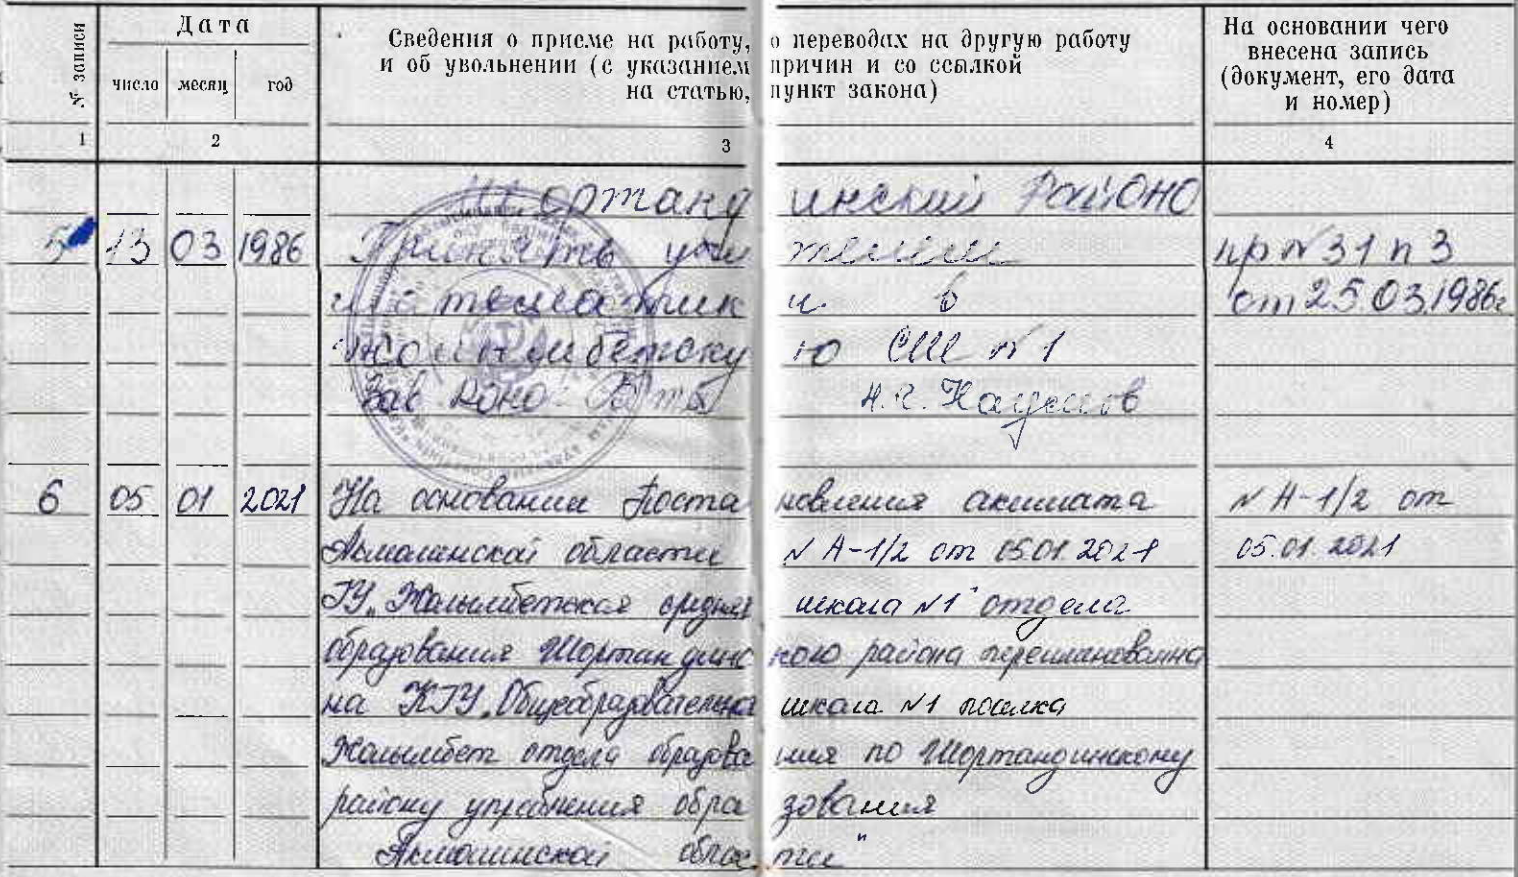 № записи
Дата
число месяц год
Сведения о приеме на работу, о переводах на другую работу
и об увольнении (с указанием причин и со ссылкой
на статью, пункт закона)
На основании чего
внесена запись
(документ, его дата
и номер)
1 2 3 4
Шортандинский РайОНО
5 13 03 1986 Принять учителем пр №31 п 3
математики в от 25.03.1986г
Жолымбетскую СШ №1
Зав РОНО
6 05 01 2021 На основании Постановления акимата № А-1/2 от
Акмолинской области № А-1/2 от 05.01.2021 05.01.2021
ГУ „Жолымбетская средняя школа №1" отдела
образования Шортандинского района переименованна
на КГУ „Общеобразовательная школа №1 поселка
Жолымбет отдела образования по Шортандинскому
району управления образования
Акмолинской области"